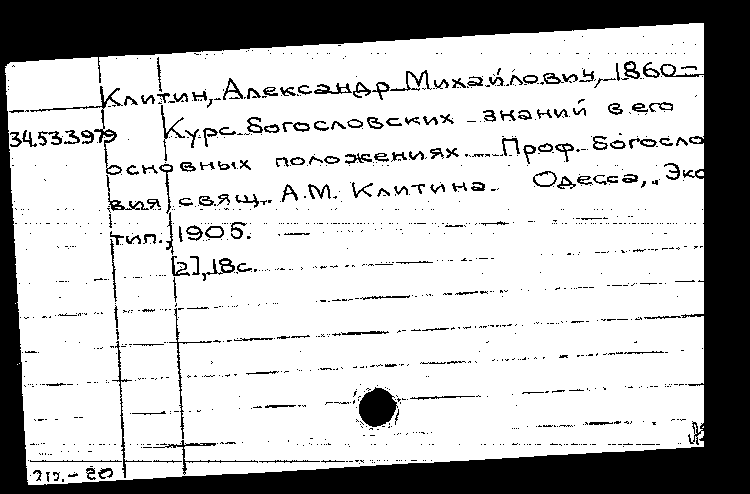 Клитин, Александр Михайлович, 1860-
34.53.3979 Курс богословских знаний в его
основных положениях. Проф. богосло
вия, свящ. А.М. Клитина. Одесса, „Эко
тип., 1905. —
[2], 18с.